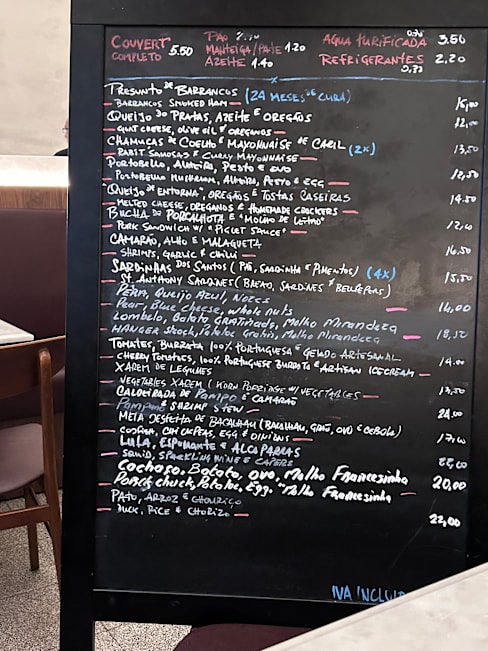 COUVERT COMPLETO 5.50
PÃO
MANTEIGA/PATE 1.20
AZEITE 1.40
AGUA PURIFICADA 3.50
REFRIGERANTES 2.20
PRESUNTO DE BARRANCOS (24 MESES DE CURA)
BARRANCOS SMOKED HAM
QUEIJO DO PRATAS, AZEITE E OREGÃOS 12,00
GOAT CHEESE, OLIVE OIL & OREGANOS
CHAMUÇAS DE COELHO E MAYONNAISE DE CARIL (2x) 13,50
RABIT SAMOSAS & CURRY MAYONNAISE
PORTOBELLO, ALHEIRA, PESTO E OVO 12,50
PORTOBELLO MUSHROOM, ALHEIRA, PESTO & EGG
"QUEIJO DE ENTORNA", OREGÃOS E TOSTAS CASEIRAS 14.50
MELTED CHEESE, OREGANOS & HOMEMADE CROCKERS
BUCHA DE PORCALHOTA E "MOLHO DE LEITÃO"
PORK SANDWICH W/ "PIGLET SAUCE"
CAMARÃO, ALHO E MALAGUETA 16.50
SHRIMPS, GARLIC & CHILI
SARDINHAS DOS SANTOS (PÃO, SARDINHA E PIMENTOS) (4x) 15,50
ST. ANTHONY SARDINES (BREAD, SARDINES & BELLPEPERS)
PÊRA, QUEIJO AZUL, NOZES 16,00
Pear, Blue cheese, whole nuts
Lombelo, Batata Gratinada, Molho Mirandeza 18,50
HANGER Steack, Potatoe Gratin, Molho Mirandeza
TOMATES, BURRATA 100% PORTUGUESA E GELADO ARTESANAL 14.00
CHERRY TOMATOES, 100% PORTUGUESE BURRATA & ARTISAN ICECREAM
XARÉM DE LEGUMES
VEGETABLES XAREM (KORN PORRIDGE W/ VEGETABLES)
CALDEIRADA DE PAMPO E CAMARÃO 24,00
PAMPANO & SHRIMP STEW
MEIA DESFEITA DE BACALHAU (BACALHAU, GRÃO, OVO E CEBOLA) 17,00
CODFISH, CHICKPEAS, EGG & ONIONS
LULA, ESPUMANTE E ALCAPARRAS
SQUID, SPARKLING WINE & CAPERS
Cachaço, Batata, ovo, Molho Francesinha 20,00
PORK'S chuck, Potatoe, Egg, "Molho Francesinha
PATO, ARROZ E CHOURIÇO 22,00
DUCK, RICE & CHORIZO
IVA INCLUI